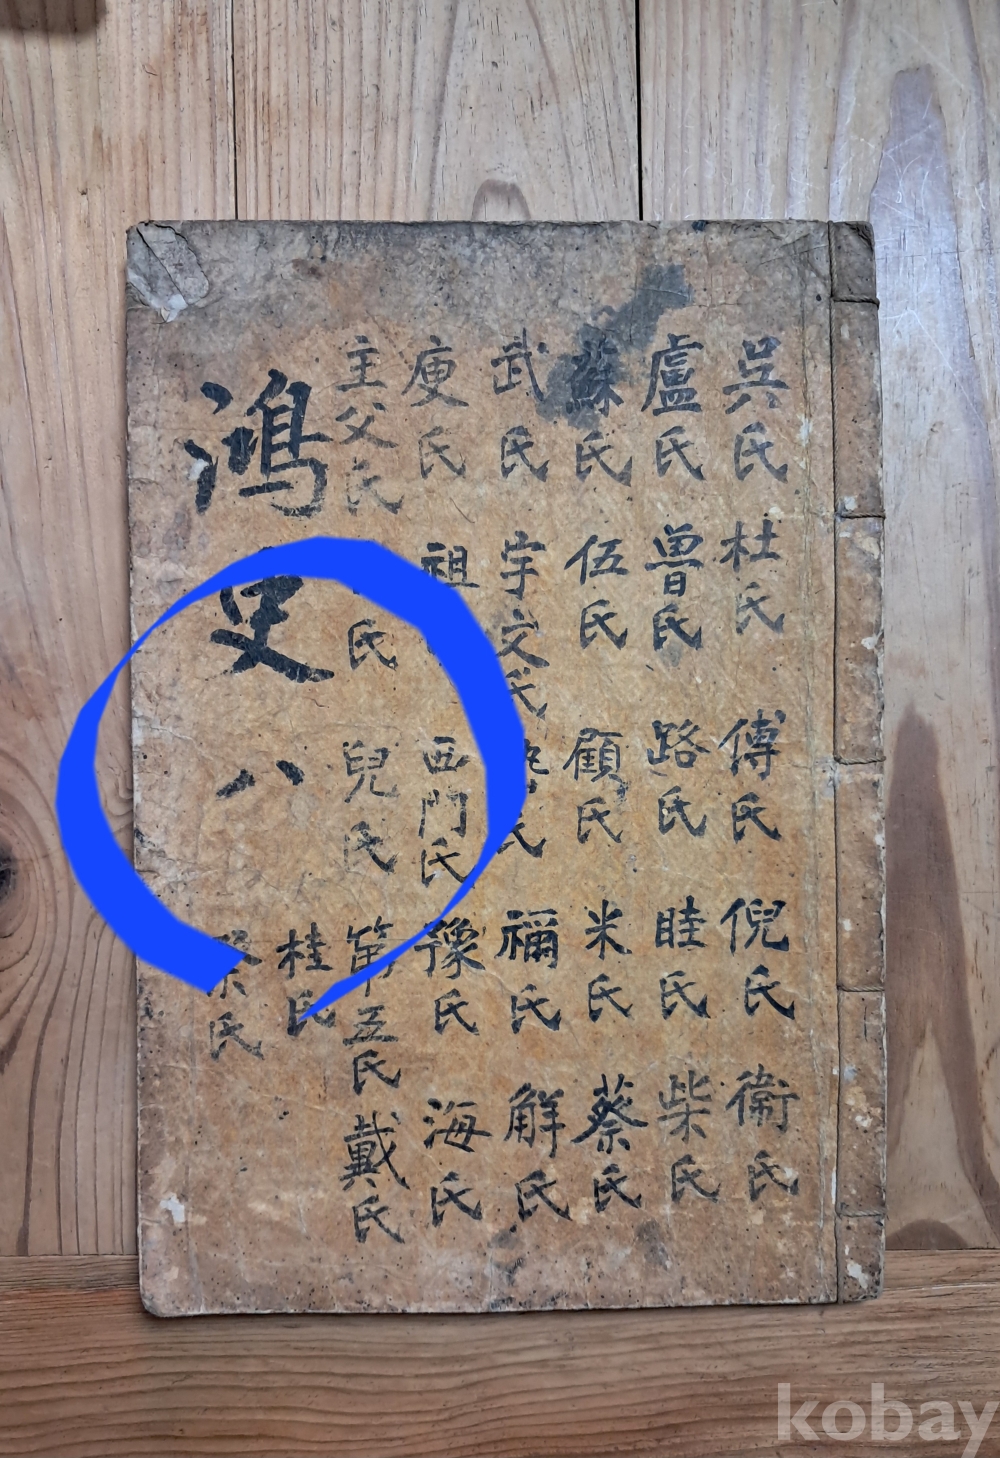 吳氏 杜氏 傅氏 倪氏 衞氏
盧氏 曾氏 路氏 眭氏 柴氏
蘇氏 伍氏 顧氏 米氏 蔡氏
武氏 宇文氏 氏 禰氏 解氏
庾氏 祖 西門氏 豫氏 海氏
主父氏 氏 兒氏 第五氏 戴氏
桂氏
鴻史 八
氏
kobay